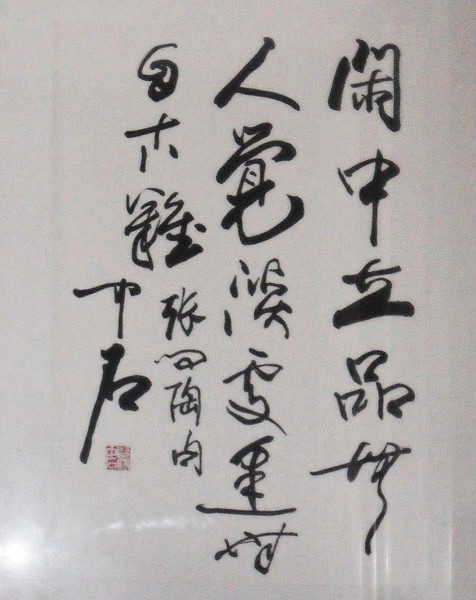 閑中立品無
人覺淡處逢時
自古難
張問陶句
中石